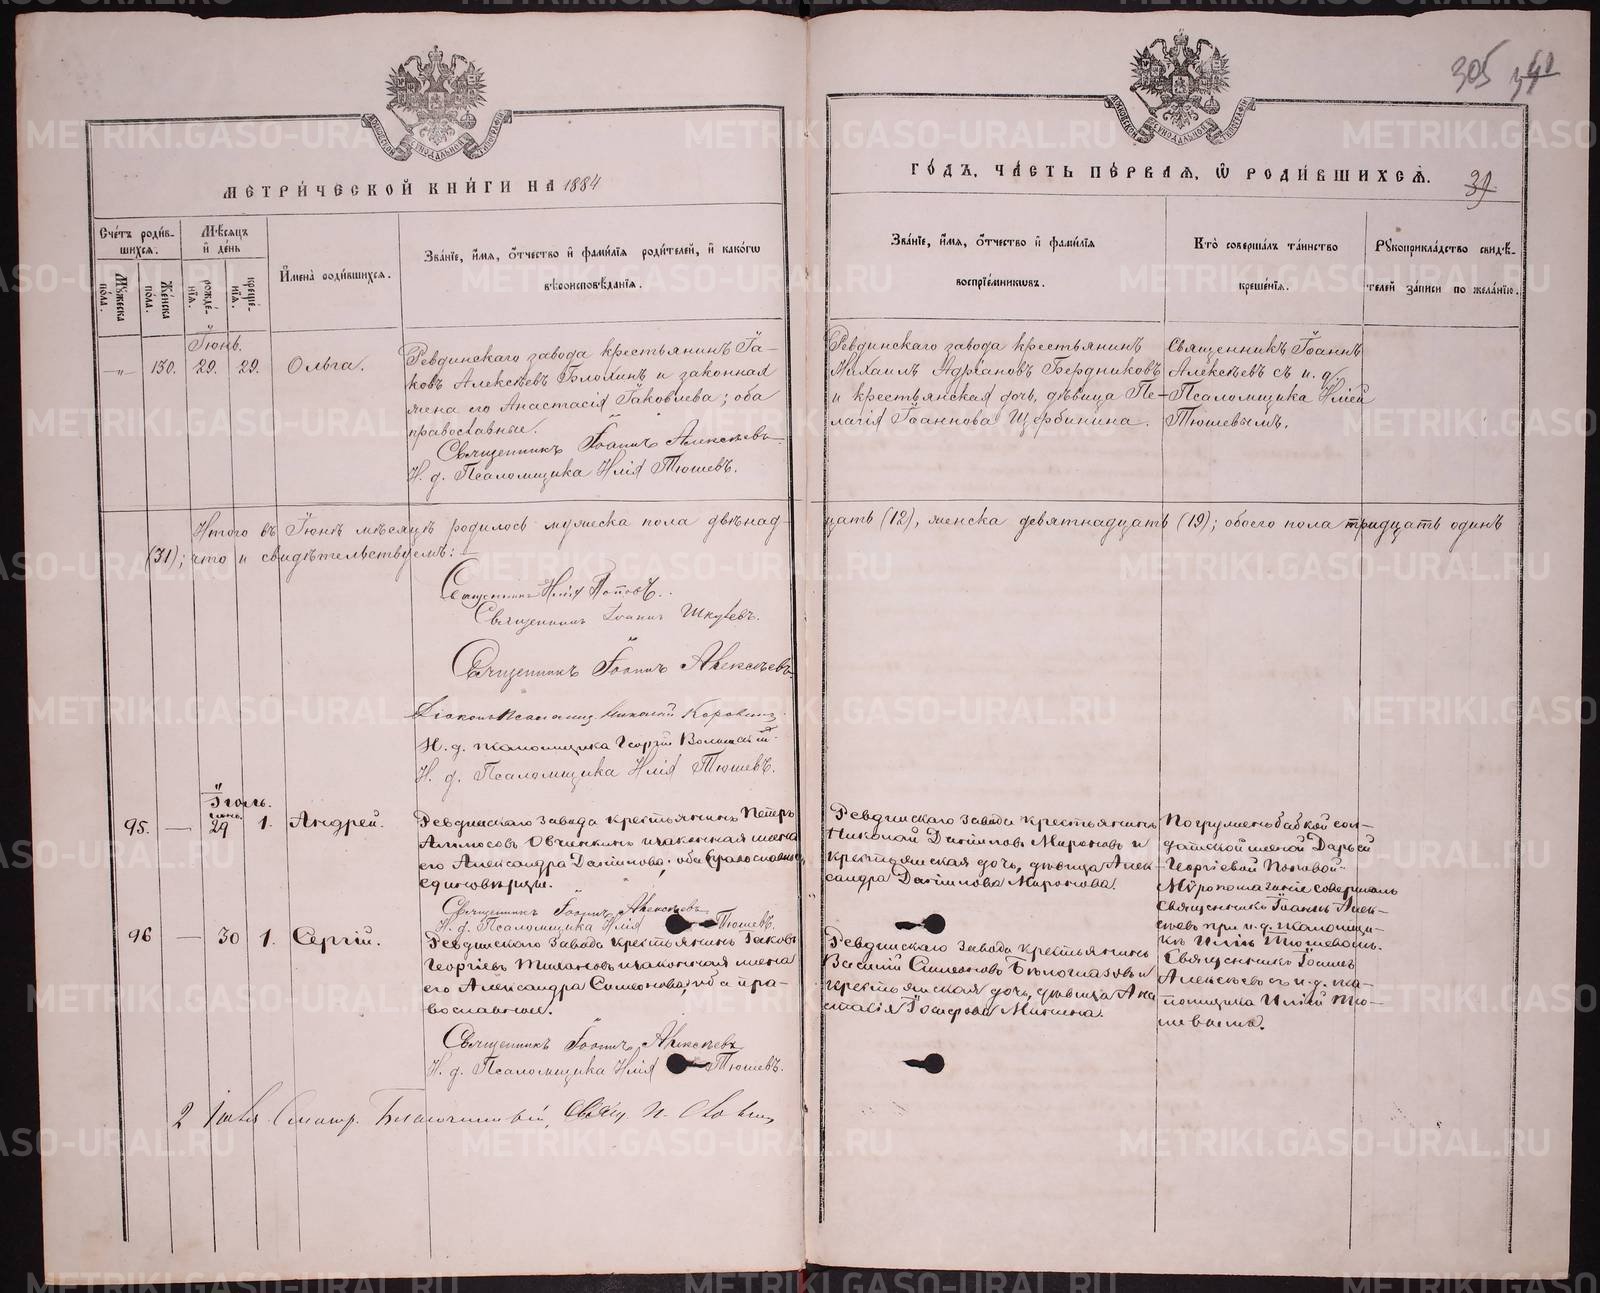 305
МЕТРИ́ЧЕСКОЙ КНИ́ГИ НА 1884
ГО́ДЪ, ЧА́СТЬ ПЕ́РВАЯ, Ѡ РОДИ́ВШИХСЯ.
39
Сче́тъ роди́в-
шихся.
Мѣ́сяцъ
и́ де́нь
Мꙋжеска по́ла.
Же́нска по́ла.
рожде́-
нїѧ.
креще́-
нїѧ.
И҆мена̀ роди́вшихся.
Зва́нїе, и҆́мя, ѻ҆́тчество и҆ фами́лїя роди́телей, и҆ како́гѡ
вѣроисповѣ́данїя.
Зва́нїе, и҆́мя, ѻ҆́тчество и҆ фами́лїя
воспрїе́мниковъ.
Кто̀ соверша́лъ та́инство
креще́нїя.
Рꙋкоприкла́дство свидѣ́-
телей за́писи по жела́нїю.
Іюнь.
-"- 130. 29. 29. Ольга.
Ревдинскаго завода крестьянинъ Іа-
ковъ Алексѣевъ Блохинъ и законная
жена его Анастасія Іаковлева; оба
православные.
Священникъ Іоаннъ Алексѣевъ
И. д. Псаломщика Илія Тюшевъ.
Ревдинскаго завода крестьянинъ
Михаилъ Адріановъ Бердниковъ
и крестьянская дочь, дѣвица Пе-
лагія Іоаннова Щербинина.
Священникъ Іоаннъ
Алексѣевъ съ и. д.
Псаломщика Иліей
Тюшевымъ.
Итого въ Іюнѣ мѣсяцѣ родилось мужеска пола двѣнад-
цать (12), женска девятнадцать (19); обоего пола тридцать одинъ
(31); что и свидѣтельствуемъ:
Священникъ Илія Поповъ.
Священникъ Іоаннъ
Священникъ Іоаннъ Алексѣевъ
Николай Коровинъ
И. д. псаломщика Георгій
И. д. Псаломщика Илія Тюшевъ.
Іюль.
95. — июнь 29 1. Андрей.
Ревдинскаго завода крестьянинъ Петръ
Овчинкинъ и законная жена
его Александра Даніилова; оба православные
единовѣрцы.
Священникъ Іоаннъ Алексѣевъ
И. д. Псаломщика Илія Тюшевъ.
Ревдинскаго завода крестьянинъ
Николай Даніиловъ Мироновъ и
крестьянская дочь, дѣвица Алек-
сандра Даніилова Миронова.
Погружено бабкой сол-
датской женой Дарьей
Георгіевой Поповой.
Мѵропомазаніе совершалъ
Священникъ Іоаннъ Алек-
сѣевъ при и. д. псаломщи-
кѣ Иліи Тюшевомъ.
96 — 30 1. Сергій.
Ревдинскаго завода крестьянинъ Іаковъ
Георгіевъ и законная жена
его Александра Симеонова; оба пра-
вославные.
Священникъ Іоаннъ Алексѣевъ
И. д. Псаломщика Илія Тюшевъ.
Ревдинскаго завода крестьянинъ
Василій Симеоновъ Бѣлоглазовъ и
крестьянская дочь, дѣвица Ана-
стасія Минина.
Священникъ Іоаннъ
Алексѣевъ съ и. д. пса-
ломщика Иліей Тю-
шевымъ.
2 Іюля Смотр. Благочинный, Свящ.
METRIKI.GASO-URAL.RU